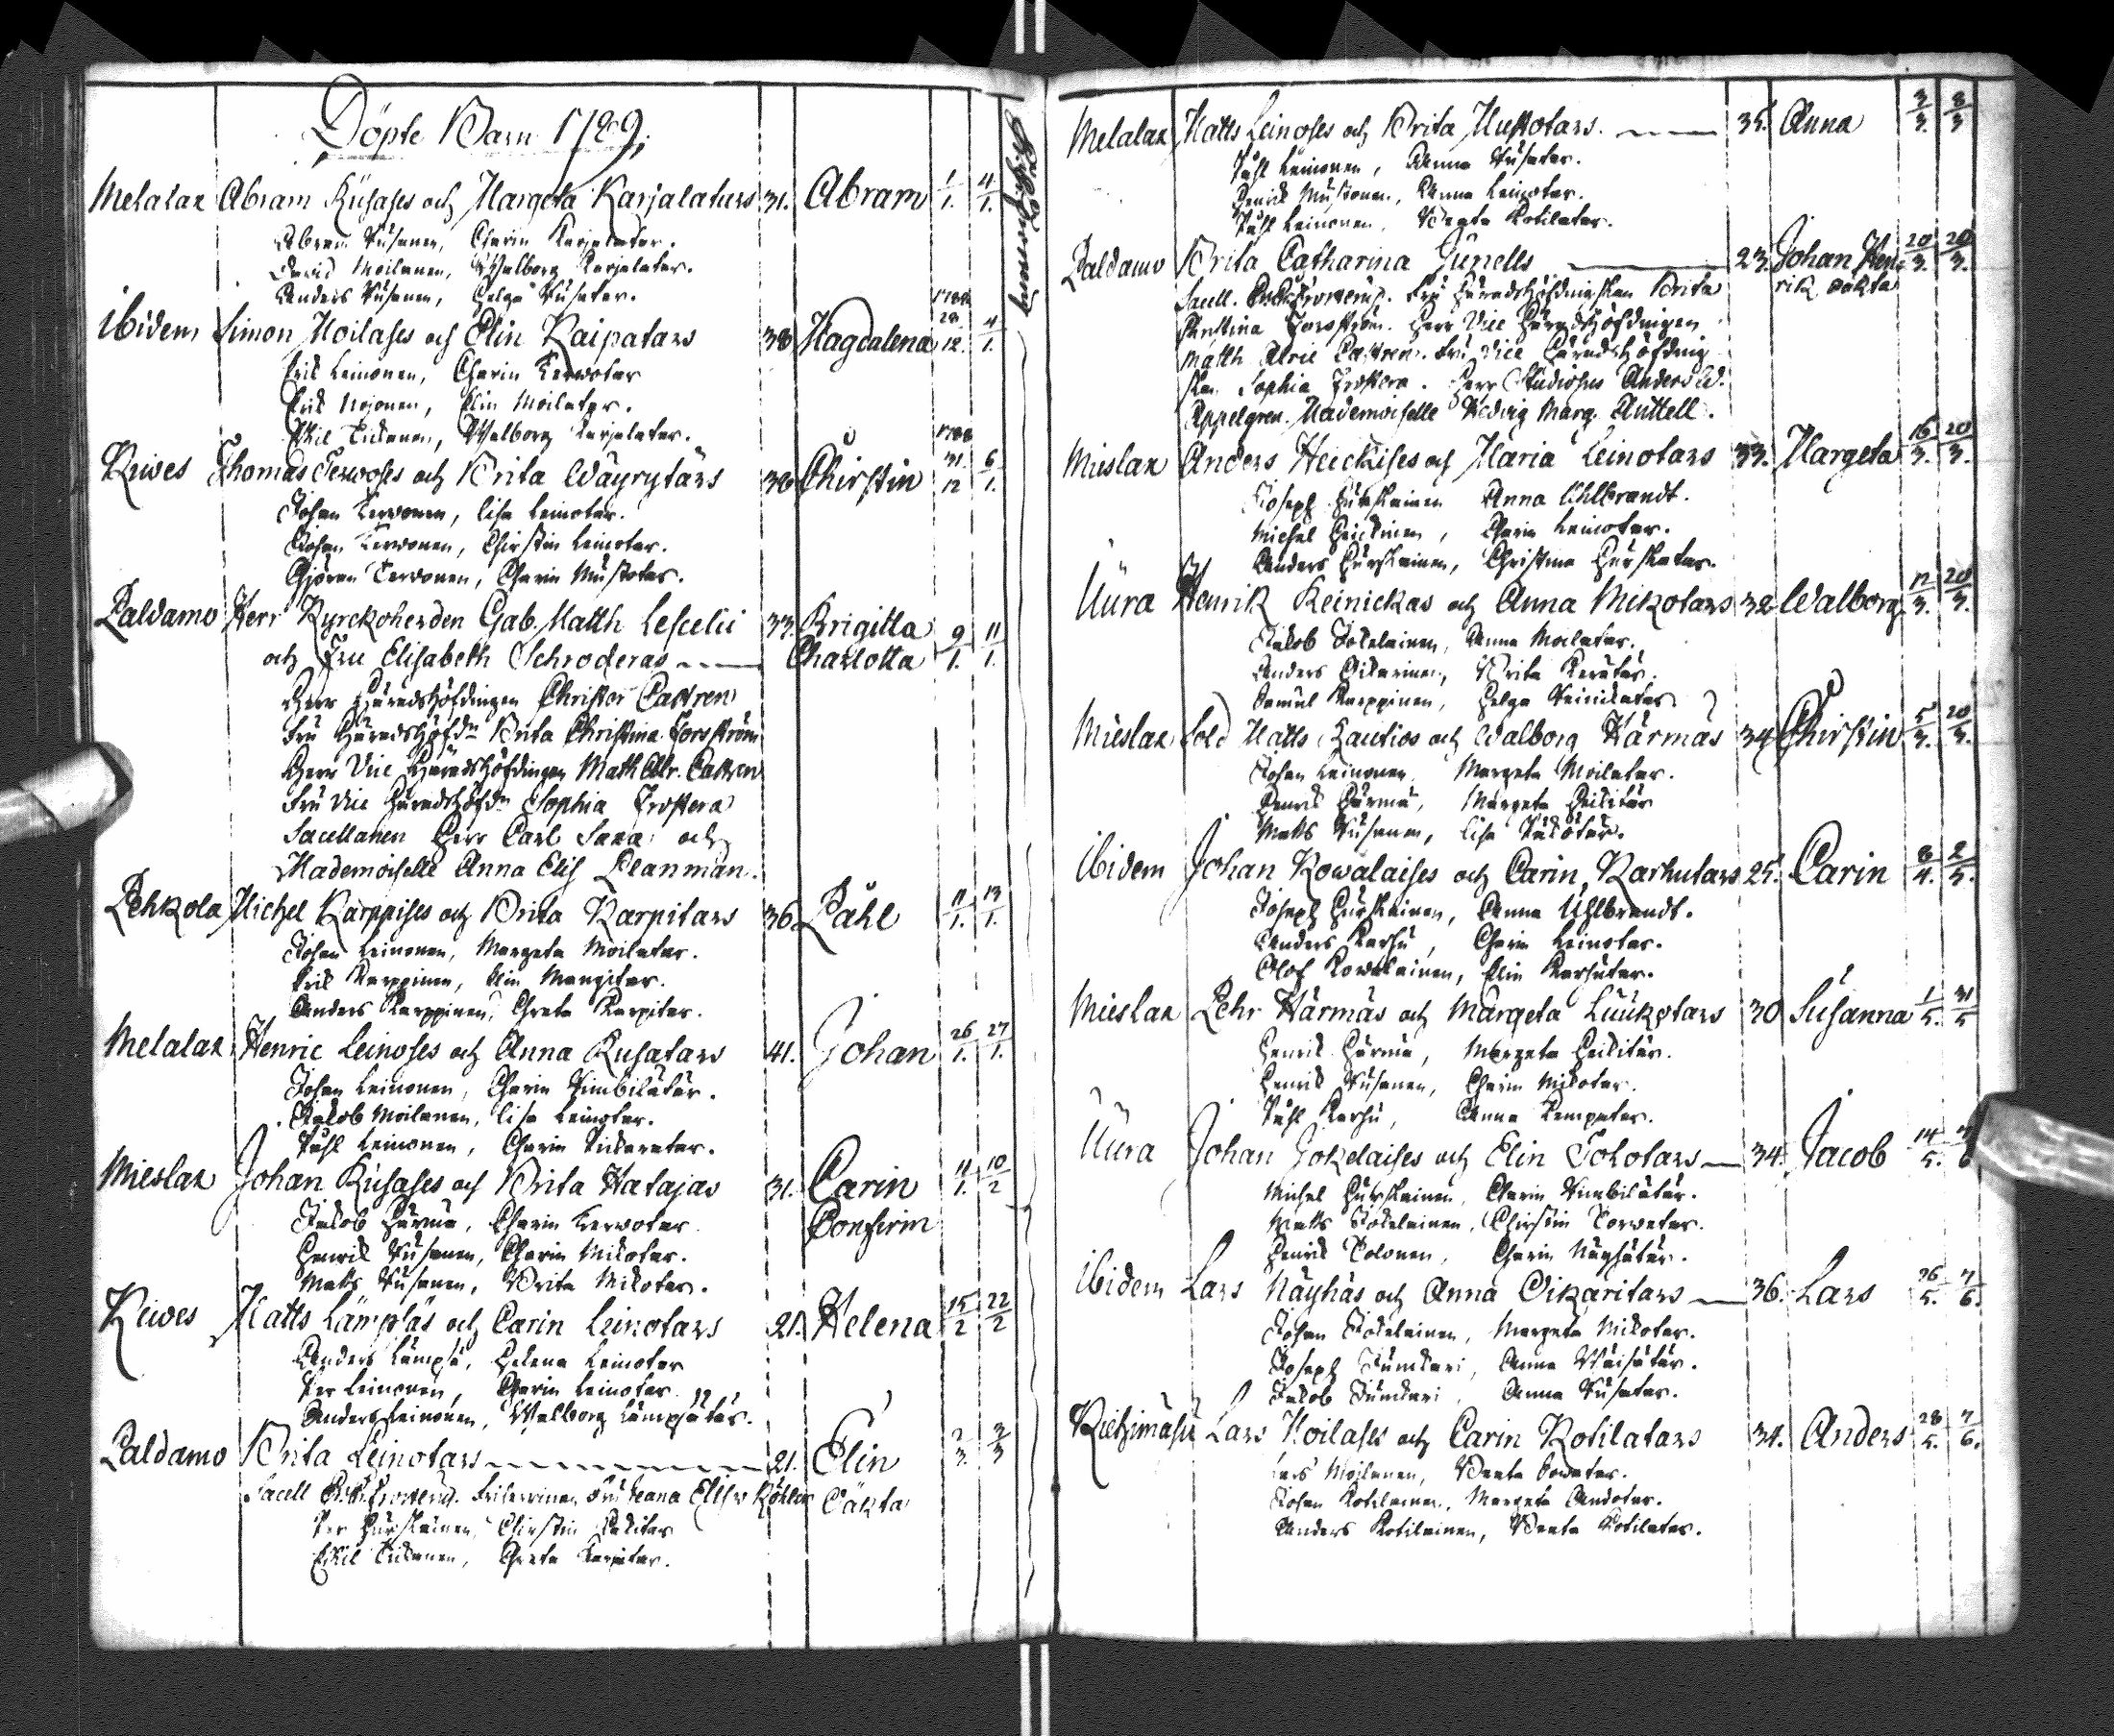 Döpte Barn 1789.
Melalax Abram Kusases och Margeta Karjalatars 31. Abram 1/1. 4/1.
Abram Kusanen, Charin Karjalatar.
David Moilanen, Walborg Karjalatar.
Anders Kusanen, Helga Kusatar.
Ibidem Simon Moilases och Elin Kaipatars 38 Magdalena 1788 28/12. 4/1.
Erik Leinonen, Charin Kerwotar
Erik Mojonen, Elin Moilatar.
Eskil Tickanen, Walborg Karjalatar.
Kiwes Thomas Terwoses och Brita Wäyrytärs 30 Chirstin 1788 31./12 6/1.
Johan Terwonen, Lisa Leinotar.
Johan Terwonen, Chirstin Leinotar.
Gjöran Terwonen, Charin Mustotar.
Paldamo Herr Kyrckoherden Gab. Matth Lescelii 33. Brigitta
och Fru Elisabeth Schroderas Charlotta 9/1. 11/1.
Herr Häradshöfdingen Christer Castren
Fru Häradshöfdn Brita Christina Forsström
Herr Vice Häradshöfdingen Math Alr. Castren
Fru Vice Häradshöfdn Sophia Frostera
Sacellanen Herr Carl Saxa och
Mademoiselle Anna Elis Planman.
Pehkola Michel Karppises och Brita Karpitars 36. Påhl 11/1. 13/1.
Johan Leinonen, Margeta Moilatar.
Erik Karppinen, Elin Mangitar.
Anders Karppinen, Greta Karpitar.
Melalax Henric Leinoses och Anna Kusatars 41. Johan 26/1. 27/1.
Johan Leinonen, Charin Kimbilätär.
Jakob Moilanen, Lisa Leinotar.
Påhl Leinonen, Charin Pickaratar.
Mieslax Johan Kusases och Brita Hatajas 31. Carin 11/1. 10/2
Jakob Härmä, Charin Kerwotar Confirm
Henrik Kusanen, Charin Mikotar.
Matts Kusanen, Brita Mikotar.
Kiwes Matts Lämpsäs och Carin Leinotars 21. Helena 15/2 22/2
Anders Lämpsä, Helena Leinotar
Per Leinonen, Charin Leinotar.
Anders Leinonen, Walborg Lämpsätär.
Paldamo Brita Leinotars 21. Elin 2/3. 3/3
Oäkta
Per Hurskainen, Chirstin
Eskil Tickanen, Greta Karpitar.
Melalax Matts Leinoses och Brita Mustotars. 35. Anna 3/3. 8/3
Påhl Leinonen, Anna Kusatar.
Henrik Mustonen, Anna Leinotar.
Påhl Leinonen, Beata Kotilatar.
Paldamo Brita Catharina Junells 23. Johan Hen- 20/3. 20/3.
rik oäkta
Fru Häradshöfdingskan Brita
Christina Forsström. Herr Vice Häradshöfdingen
Matth Alric Castren. Fru Vice Häradshöfding
skan Sophia Frostera. Herr Studiosus Anders W.
Appelgren. Mademoiselle Hedvig Marg. Anttell.
Mieslax Anders Heickises och Maria Leinotars 33. Margeta 16/3. 20/3.
Joseph Hurskainen Anna Uhlbrandt.
Michel Heickinen, Charin Leinotar.
Anders Hurskainen, Christina Hurskatar.
Uura Henrik Keinickas och Anna Mikotars 32 Walborg 12/3. 20/3.
Jakob Jokelainen, Anna Moilatar.
Anders Oikarinen, Brita Kerätär.
Samuel Karppinen, Helga Keinickatar
Mieslax Sold Matts Hautios och Walborg Härmäs 34 Chirstin 5/3. 20/3.
Johan Leinonen, Margeta Moilatar.
Henrik Härmä, Margeta Heikitär
Matts Kusanen, Lisa
Ibidem Johan Kowalaises och Carin Karhutars 25. Carin 8/4. 2/5.
Joseph Hurskainen, Anna Uhlbrandt.
Anders Karhu, Charin Leinotar.
Olof Kowalainen, Elin Karhutar.
Mieslax Pehr Härmäs och Margeta Luukotars 30 Susanna 1/5. 31/5
Henrik Härmä, Margeta Heikitär.
Henrik Kusanen, Charin Mikotar.
Påhl Karhu, Anna Kempatar.
Uura Johan Jokelaises och Elin Tolotars 34. Jacob 14/5.
Michel Hurskainen, Charin Kimbilätär.
Matts Jokelainen, Chirstin Torwatar.
Henrik Tolonen, Charin Näyhätär.
Ibidem Lars Näyhäs och Anna Oikaritars 36. Lars 26/5. 7/6.
Johan Jokelainen, Margeta Mikotar.
Joseph Juntkari, Anna Wäisätär.
Jakob Juntkari, Anna Kusatar.
Kietzimäsu Lars Moilases och Carin Kotilatars 34. Anders 28/5. 7/6.
Lars Moilanen, Beata
Johan Kotilainen, Margeta
Anders Kotilainen, Beata Kotilatar.